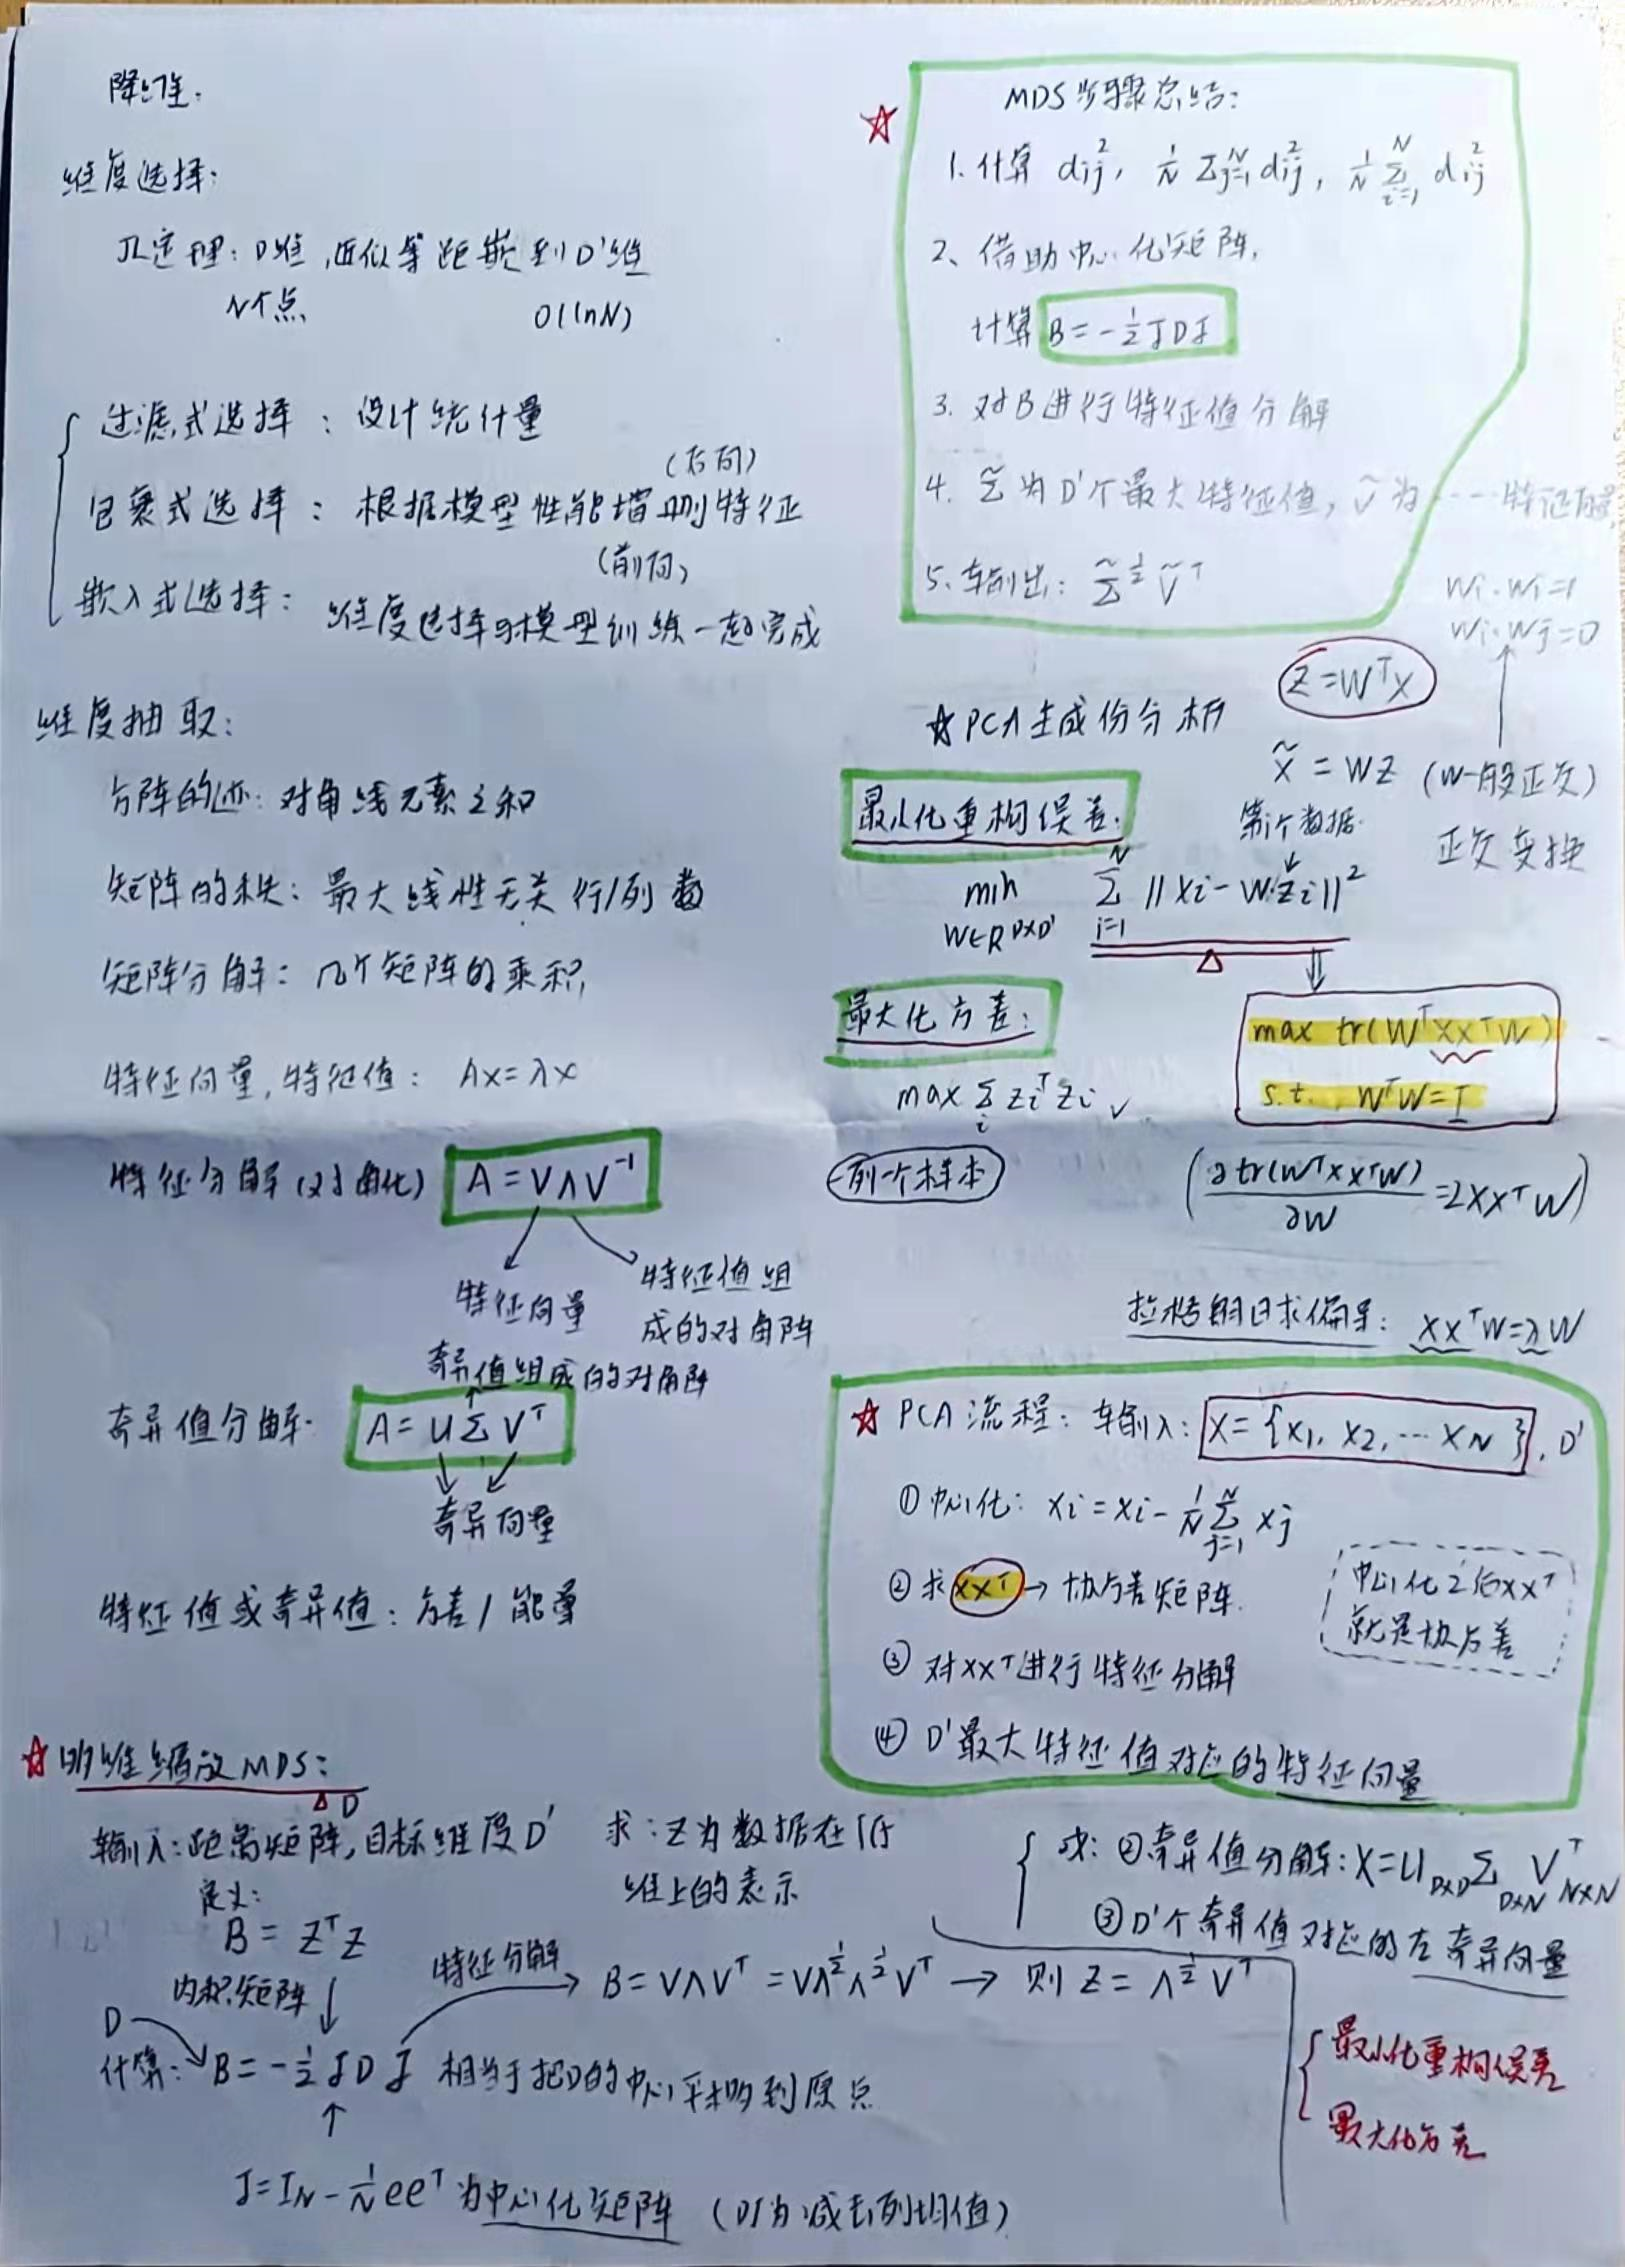 降维：
维度选择：
JL定理：D维，近似等距嵌到D'维
N个点
O(lnN)
过滤式选择：设计统计量
（后向）
包裹式选择：根据模型性能增删特征
（前向）
嵌入式选择：维度选择与模型训练一起完成
维度抽取：
方阵的迹：对角线元素之和
矩阵的秩：最大线性无关行/列数
矩阵分解：几个矩阵的乘积
特征向量，特征值：Ax=λx
特征分解（对角化） A=VΛV⁻¹
特征向量
特征值组
成的对角阵
奇异值组成的对角阵
奇异值分解： A=UΣVᵀ
奇异向量
特征值或奇异值：方差/能量
☆ 多维缩放MDS：
D
输入：距离矩阵，目标维度D'
求：Z为数据在低
维上的表示
定义：
B=ZᵀZ
内积矩阵
特征分解
B=VΛVᵀ=VΛ^½Λ^½Vᵀ → 则 Z=Λ^½Vᵀ
D
计算：B=-½JDJ 相当于把D的中心平移到原点
J=I_N-1/N eeᵀ为中心化矩阵（DJ为减去列均值）
☆ MDS步骤总结：
1.计算 dij², 1/N Σ_{j=1}^N dij², 1/N Σ_{i=1}^N dij²
2、借助中心化矩阵，
计算 B=-½JDJ
3.对B进行特征值分解
4. Σ̃为D'个最大特征值，Ṽ为……特征向量
5.输出：Σ̃^½Ṽᵀ
wi·wi=1
wi·wj=0
Z=WᵀX
☆PCA主成份分析
X̃=WZ（W一般正交）
正交变换
最小化重构误差：
第i个数据
min Σ_{i=1}^N ||xi-W·zi||²
W∈R^{D×D'}
最大化方差：
max tr(WᵀXXᵀW)
s.t. WᵀW=I
max Σ_i ziᵀzi √
一列一个样本
(∂tr(WᵀXXᵀW)/∂W=2XXᵀW)
拉格朗日求偏导：XXᵀW=λW
☆ PCA流程：输入：X={x₁, x₂, … x_N}, D'
①中心化：xi=xi-1/N Σ_{j=1}^N xj
②求XXᵀ→协方差矩阵.
中心化之后XXᵀ
就是协方差
③对XXᵀ进行特征分解
④D'最大特征值对应的特征向量
或：②奇异值分解：X=U_{D×D}Σ_{D×N}Vᵀ_{N×N}
③D'个奇异值对应的左奇异向量
最小化重构误差
最大化方差